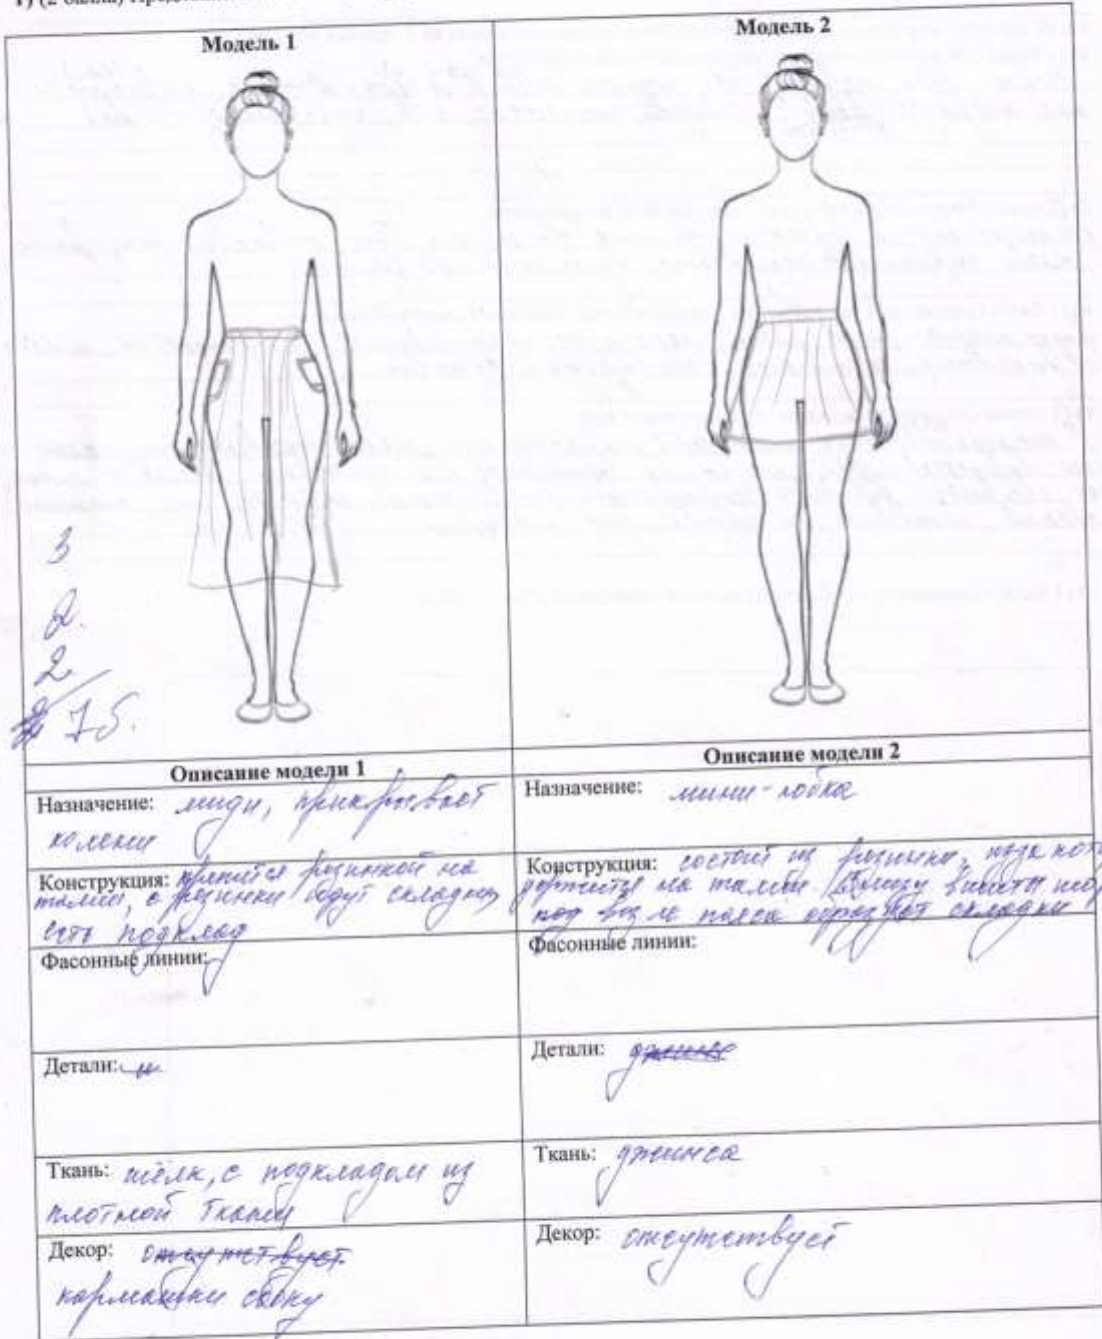 Модель 1
Модель 2
3
2.
2
7 б.
Описание модели 1
Описание модели 2
Назначение: миди, прикрывает
колени
Назначение: мини-юбка
Конструкция: крепится резинкой на
талии, с резинки идут складки,
есть подклад
Конструкция: состоит из резинки,
держится на талии.
под возле пояса образует складки
Фасонные линии:
Фасонные линии:
Детали:
Детали:
Ткань: шёлк, с подкладом из
плотной ткани
Ткань: джинса
Декор: отсутствует
кармашки сбоку
Декор: отсутствует